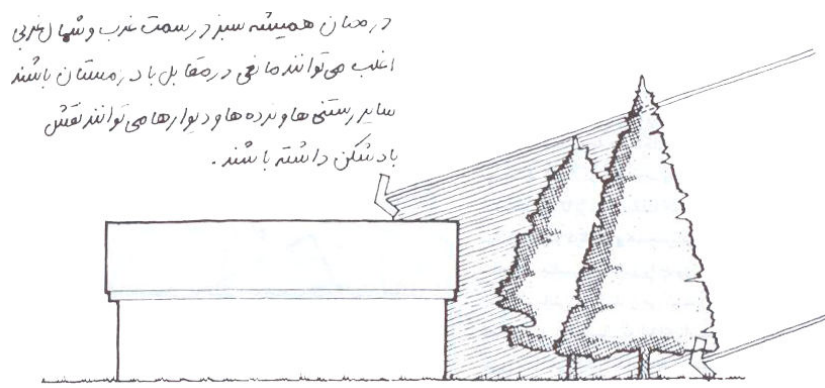 درختان همیشه سبز در سمت غرب و شمال غربی
اغلب می‌توانند مانعی در مقابل باد زمستان باشند
سایر رستنی‌ها و نرده‌ها و دیوارها می‌توانند نقش
باد شکن داشته باشند.